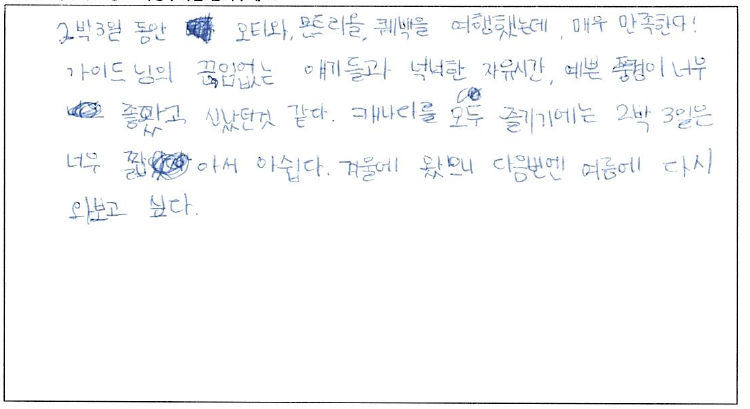 2박3일 동안 오타와, 몬트리올, 퀘백을 여행했는데, 매우 만족한다!
가이드님의 끊임없는 얘기들과 넉넉한 자유시간, 예쁜 풍경이 너무
좋았고 신났던것 같다. 캐나다를 모두 즐기기에는 2박 3일은
너무 짧아서 아쉽다. 겨울에 왔으니 다음번엔 여름에 다시
와보고 싶다.